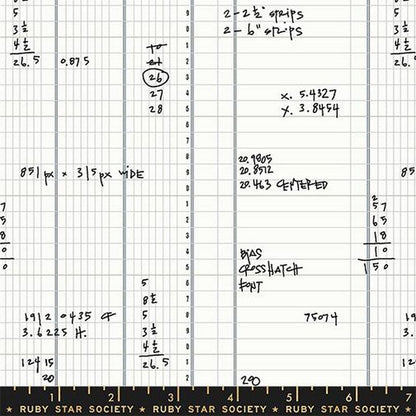 5
3 ½
4 ½
26.5 0.875
2 - 2½" strips
2 - 6" strips
26
27
28
x. 5.4327
y. 3.8454
851 px × 315 px WIDE
20.9805
20.8512
20.463 CENTERED
7
5
8
0
0
2
57
65
18
10
150
BIAS
CROSSHATCH
FONT
5
8 ½
5
3 ½
4 ½
26.5
1912 0435 CF
3.6225 H.
75074
12415
20
290
1 2 3 4 5 6
★ RUBY STAR SOCIETY ★ RUBY STAR SOCIETY ★ RUBY STAR SOCIETY ★